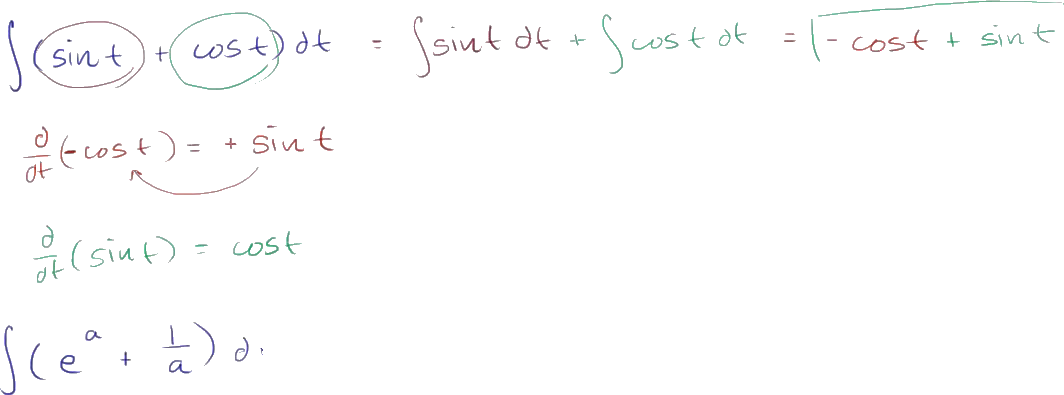 ∫(sin t + cos t) dt = ∫sin t dt + ∫cos t dt = -cos t + sin t
d/dt (-cos t) = + sin t
d/dt (sin t) = cos t
∫(e^a + 1/a) d